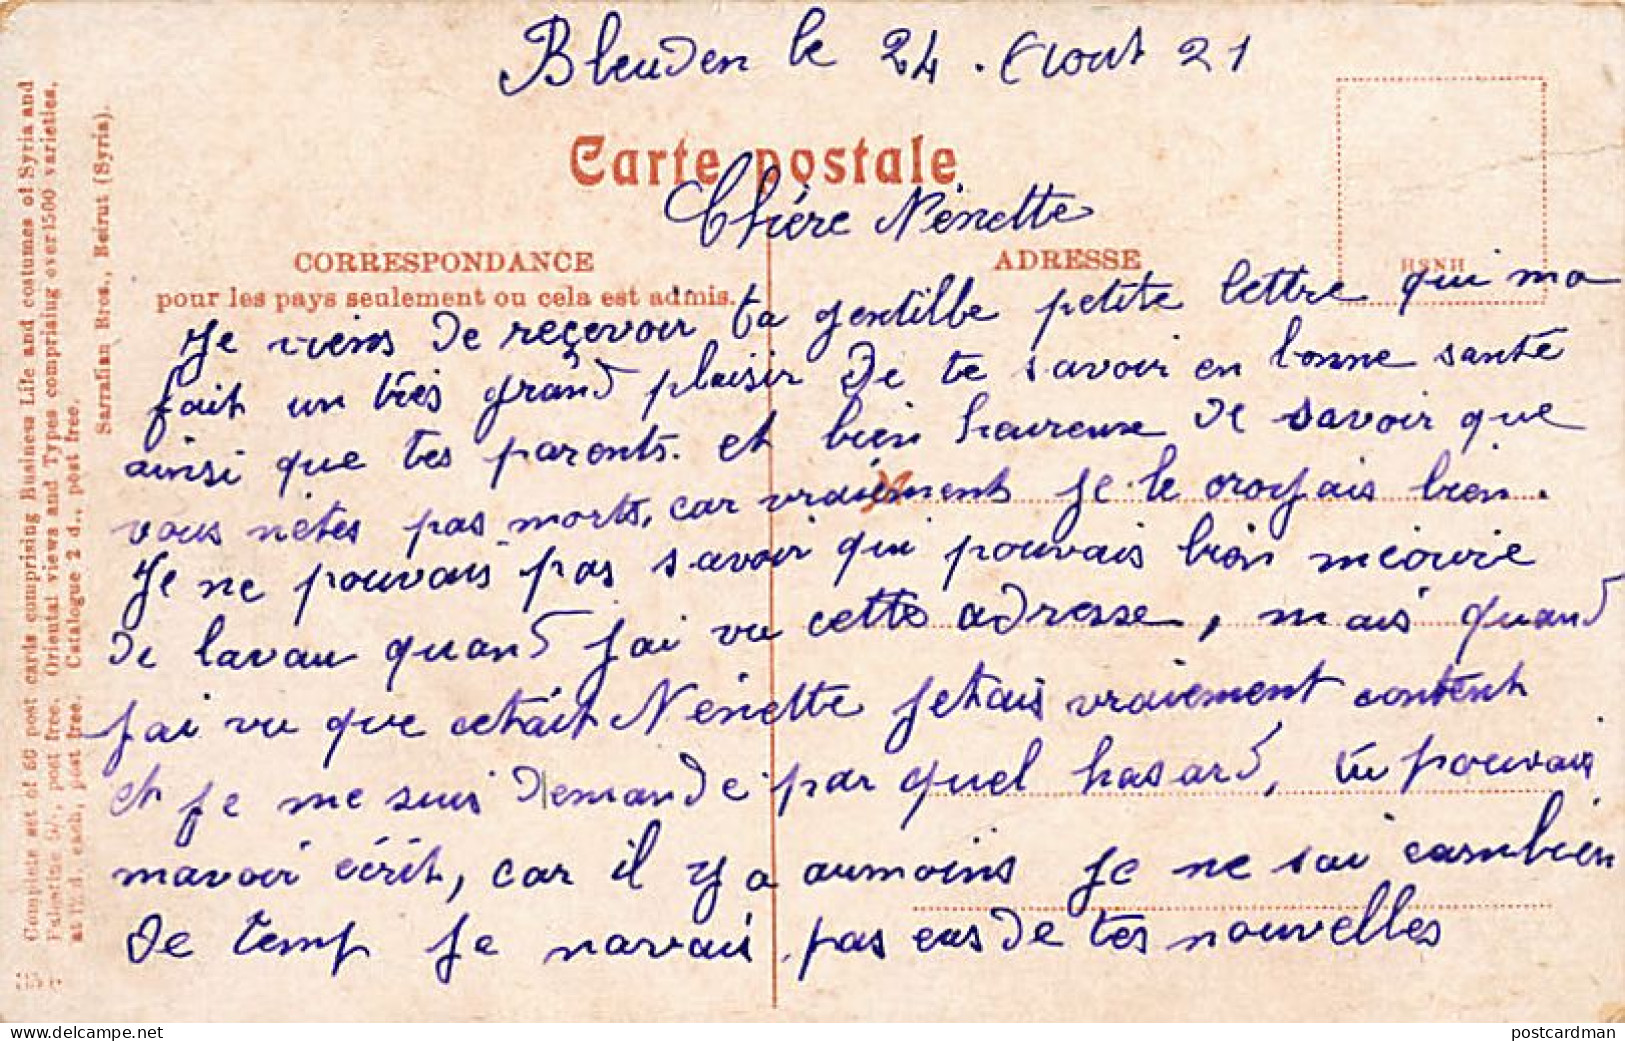 Bleuden le 24. Aout 21
Carte postale
Chière Nénette
CORRESPONDANCE
pour les pays seulement ou cela est admis.
ADRESSE
HSNH
Je viens de reçevoir ta gentille petite lettre qui ma
fait un très grand plaisir de te savoir en bonne santé
ainsi que tes parents. et bien heureuse de savoir que
vous nètes pas morts, car vraiement je le croyais bien.
Je ne pouvais pas savoir qui pouvais bien mécurie
de lavau quand jai vu cette adresse, mais quand
jai vu que cetait Nénette jetais vraiement content
et je me suis demande par quel hasard, tu pouvais
mavoir écrit, car il y a aumoins je ne sai combien
de temp je navais pas eus de tes nouvelles
Complete set of 60 post cards comprising Business Life and costumes of Syria and
Palestine 5/-, post free. Oriental views and Types comprising over 1500 varieties,
at 1½ d. each, post free. Catalogue 2 d., post free.
Sarrafian Bros., Beirut (Syria).
www.delcampe.net
postcardman